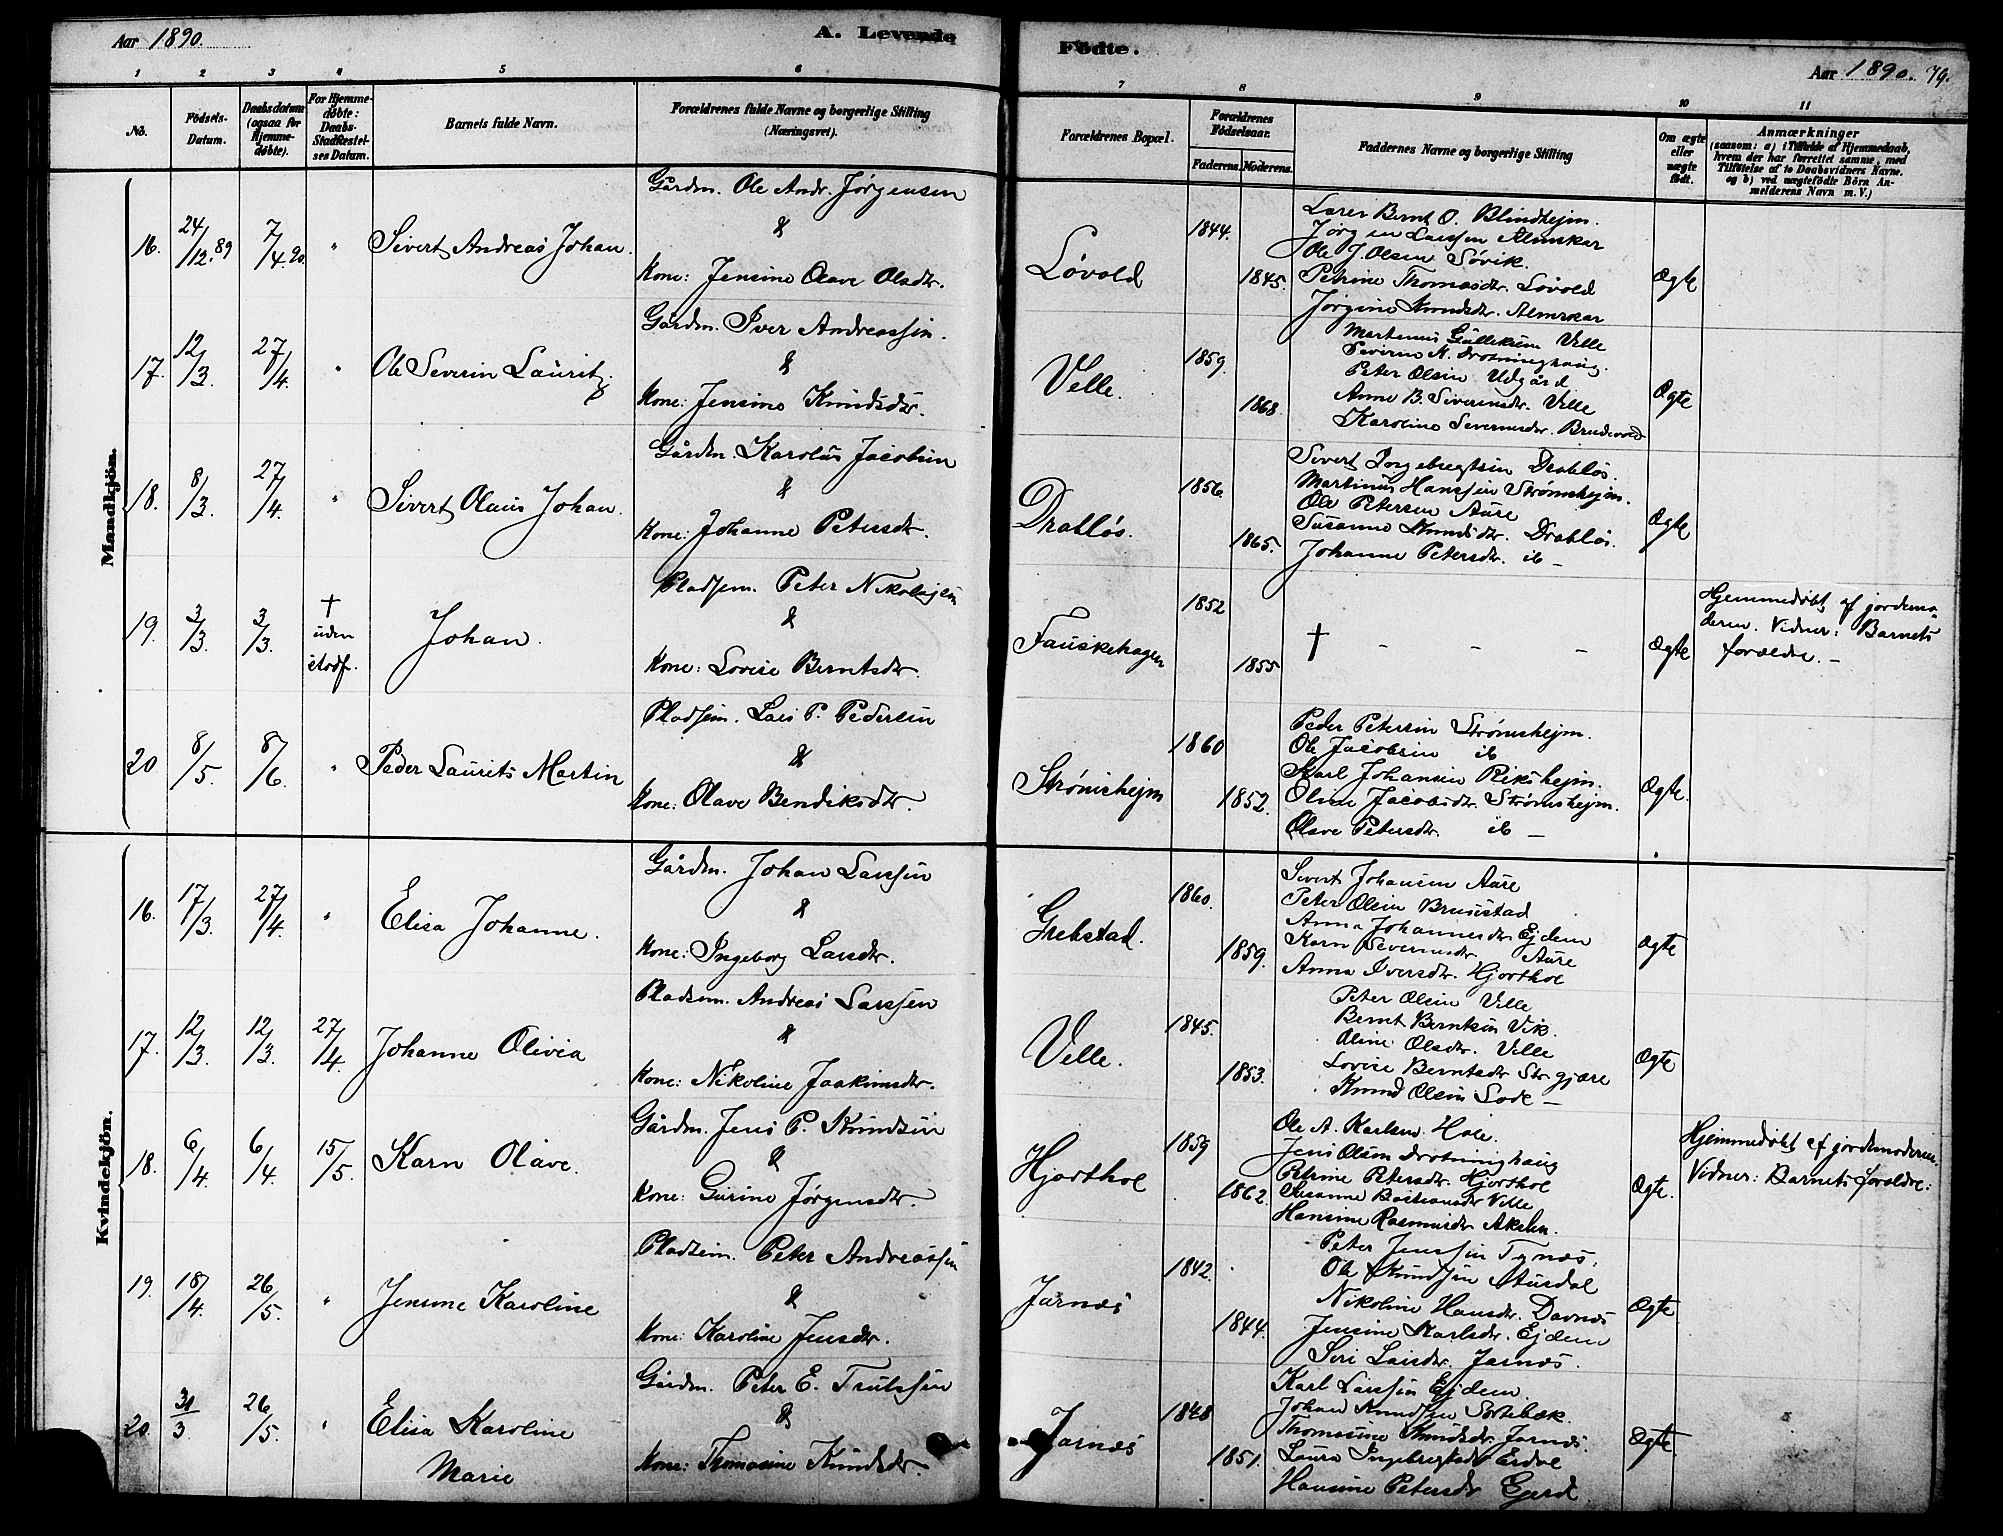 Aar 1890.
A. Levende
Födte.
Aar 1890. 79.
1 2 3 4 5 6 7 8 9 10 11
No.
Födsels-
Datum.
Daabsdatum
(ogsaa for
Hjemme-
døbte).
For Hjemme-
døbte:
Daabs-
Stadfæstel-
ses Datum.
Barnets fulde Navn.
Forældrenes fulde Navne og borgerlige Stilling
(Næringsvei).
Forældrenes Bopæl.
Forældrenes
Födselsaar.
Faderens. Moderens.
Faddernes Navne og borgerlige Stilling
Om ægte
eller
uægte
født.
Anmærkninger
(saasom: a) i Tilfælde af Hjemmedaab,
hvem der har forrettet samme, med
Tilføielse af to Daabsvidners Navne.
og b) ved uægtefødte Børn An-
melderens Navn m. V.)
Mandkjön.
16. 24/12.89 7/4.90 " Sivert Andreas Johan.
Gårdm. Ole Andr. Jørgensen
&
Kone: Jensine Olave Olsdtr.
Løvold 1844. 1845.
Bernt O. Blindhejm.
Jørgen Larssen Almskar
Ole J. Olsen Søvik.
Petrine Thomasdtr. Løvold
Jørgine Knudsdtr. Almskar
Ægte
17. 12/3. 27/4. " Ole Severin Lauritz.
Gårdm. Iver Andreassen.
&
Kone: Jensine Knudsdtr.
Velle. 1859. 1868
Martinus Velle
Peter Olsen Udgård
Anne B. Severinsdtr. Velle
Karoline Severinsdtr. Brudevold
Ægte
18. 8/3. 27/4. " Sivert Olaus Johan.
Gårdm. Karolus Jacobsen
&
Kone: Johanne Petersdtr.
Drabløs. 1856. 1865.
Sivert Drabløs.
Martinus Hanssen Strømshejm.
Ole Petersen Aure
Susanne Knudsdtr. Drabløs.
Johanne Petersdtr. ib –
Ægte
19. 3/3. 3/3. † uden stadf. Johan.
Pladsem. Peter Nikolajsen
&
Kone: Lovise Berntsdtr.
Fauskehagen 1852 1855
† – – –
Ægte
Hjemmedøbt af jordemo-
deren. Vidner: Barnets
forældre. –
20 8/5. 8/6. " Peder Laurits Martin
Pladsem. Lars P. Pedersen
&
Kone: Olave Bendiksdtr.
Strømshejm 1860 1852.
Peder Petersen Strømshejm.
Ole Jacobsen ib
Karl Johansen Rikshejm.
Oline Jacobsdtr. Strømshejm.
Olave Petersdtr. ib –
Ægte.
Kvindekjön.
16. 17/3. 27/4. " Elisa Johanne.
Gårdm. Johan Larssen
&
Kone: Ingeborg Larsdtr.
Grebstad. 1860. 1859.
Sivert Johansen Aure
Peter Olsen Brusestad
Anna Johannesdtr Ejdem
Karn Severinsdtr. Aure
Anna Iversdtr. Hjorthol
Ægte
17. 12/3. 12/3. 27/4. Johanne Olivia
Pladsem. Andreas Larssen
&
Kone: Nikoline Joakimsdtr.
Velle. 1845. 1853.
Peter Olsen Velle
Bernt Berntsen Vik.
Oline Olsdtr. Velle
Lovise Berntsdtr.
Knud Olsen –
Ægte
18. 6/4. 6/4. 15/5. Karn Olave.
Gårdm. Jens P. Knudsen
&
Kone: Gurine Jørgensdtr.
Hjorthol 1859 1862.
Ole A. Karlsen Hole.
Jens Olsen Drotninghaug
Petrine Petersdtr. Hjorthol
Susanne Bastiansdtr Velle
Hansine Rasmusdtr
Ægte.
Hjemmedøbt af jordemoderen.
Vidner: Barnets forældre:
19. 18/4. 26/5. " Jensine Karoline
Pladsem. Peter Andreassen
&
Kone: Karoline Jensdtr.
Jarnæs 1842. 1844.
Peter Jenssen Tynæs.
Ole Knudsen Aursdal
Nikoline Hansdtr. Davnæs
Jensine Karlsdtr. Ejdem
Seri Larsdtr. Jarnæs.
Ægte
20. 31/3 26/5. " Elisa Karoline
Marie
Gårdm. Peter E. Trulssen
&
Kone: Thomasine Knudsdtr.
Jarnæs 1848 1851.
Karl Larssen Ejdem.
Johan Knudsen Sortebæk.
Thomasine Knudsdtr. Jarnæs.
Laura Ingebregtsdtr Erdal
Hansine Petersdtr Gjerd
Ægte.